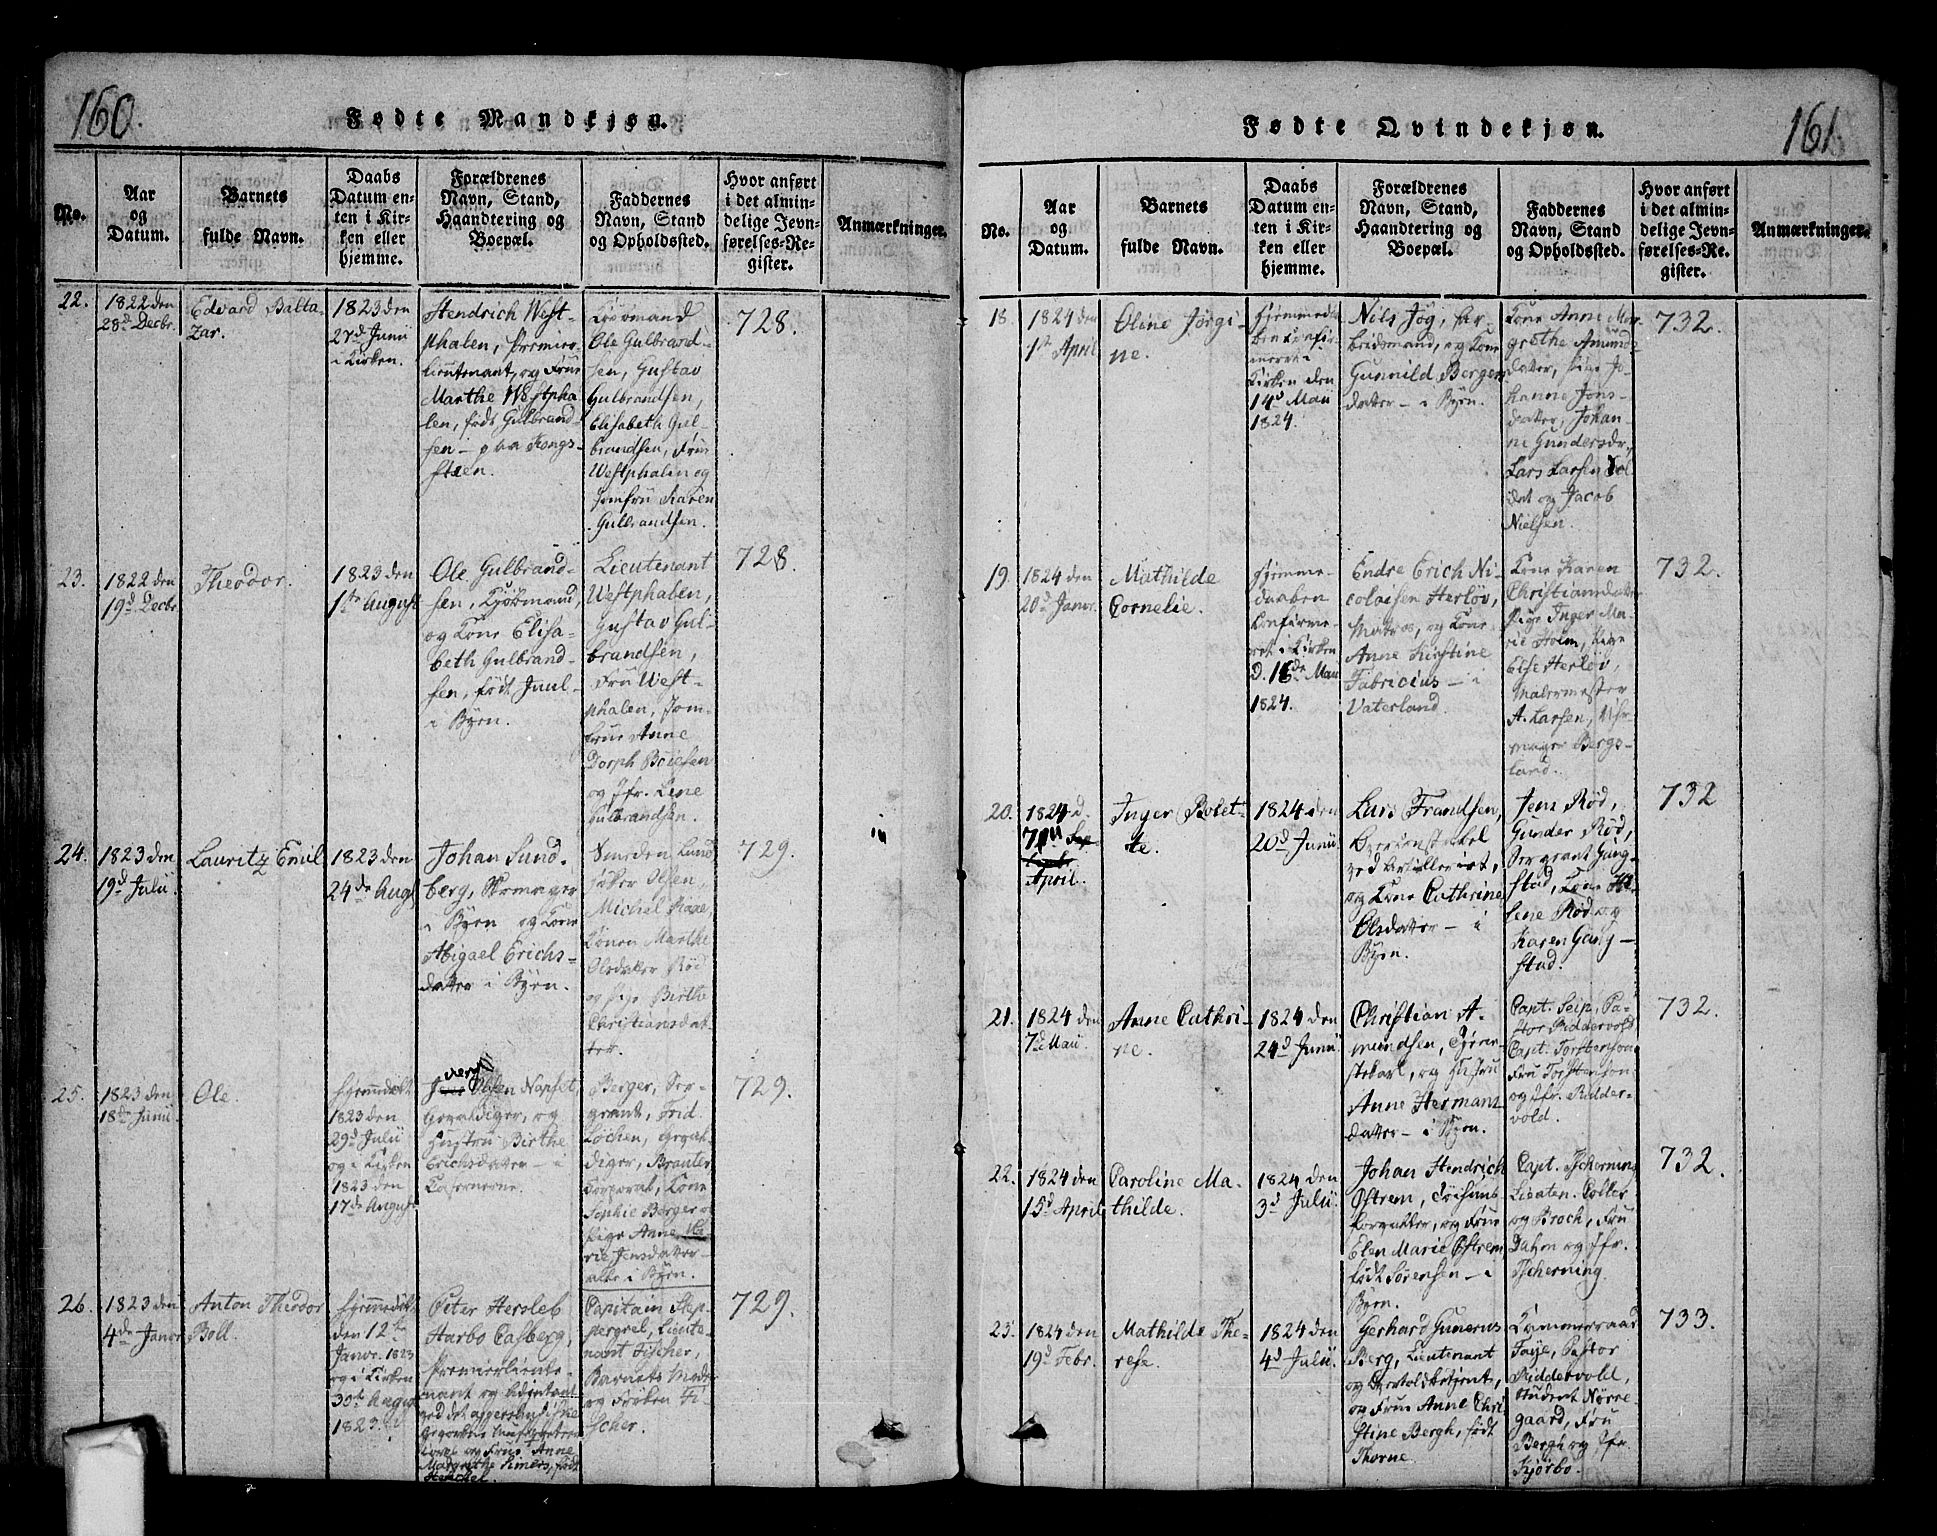 160.
Fødte Mandkjøn.
No.
Aar
og
Datum.
Barnets
fulde Navn.
Daabs
Datum en-
ten i Kir-
ken eller
hjemme.
Forældrenes
Navn, Stand,
Haandtering og
Boepæl.
Faddernes
Navn, Stand
og Opholdssted.
Hvor anført
i det almin-
delige Jevn-
førelses-Re-
gister.
Anmærkninger.
22.
1822 den
28d Decbr.
Edvard Balta-
zar.
1823 den
27d Junii
i Kirken.
Hendrich West-
phalen, Premier-
lieutenant, og Frue
Marthe Westpha-
len, født Gulbrand-
sen - paa Kongs-
steen.
Kjøbmand
Ole Gulbrand-
sen, Gustav
Gulbrandsen,
Elisabeth Gul-
brandsen, Frue
Westphalen og
Jomfru Karen
Gulbrandsen.
728.
23.
1822 den
19d Decbr.
Theodor.
1823 den
1ste August
Ole Gulbrand-
sen, Kjøbmand,
og Kone Elisa-
beth Gulbrand-
sen, født Juul-
i Byen.
Lieutenant
Westphalen,
Gustav Gul-
brandsen,
Fru West-
phalen, Jom-
frue Anne
Dorph Boiesen
og Jfr. Lene
Gulbrandsen.
728.
24.
1823 den
19d Julii.
Lauritz Emil
1823 den
24de Augt
Johan Sund-
berg, Skomager
i Byen og Kone
Abigael Erichs-
datter i Byen.
Smeden Lund
Olsen,
Michel
Konen Marthe
Olsdatter Rød
og Pige Birthe
Christiansdat-
ter.
729.
25.
1823 den
18de Junii.
Ole.
hjemmedøbt
1823 den
29d Julii
og i Kirken
1823 den
17de August
Olsen Napset,
Gevaldiger, og
Hustru Birthe
Erichsdatter - i
Casernerne.
Berger, Ser-
geant, Frid.
Lochen,
Corporal, Kone
Sophie Berger og
Pige Anne Ma-
rie Jensdatter -
alle i Byen.
729.
26.
1823 den
4de Janvr
Anton Theodor
Boll.
hjemmedøbt
den 12te
Janvr. 1823
og i Kirken
30te August
1823.
Peter Hersleb
Harbo Casberg,
Premierlieute-
nant og Adjutant
ved det
og Frue Anne
Margrethe født
Capitain
Lieute-
nant Fischer,
Barnets Moder
og Frøken Fi-
scher.
729.
161.
Fødte Qvindekjøn.
No.
Aar
og
Datum.
Barnets
fulde Navn.
Daabs
Datum en-
ten i Kir-
ken eller
hjemme.
Forældrenes
Navn, Stand,
Haandtering og
Boepæl.
Faddernes
Navn, Stand
og Opholdssted.
Hvor anført
i det almin-
delige Jevn-
førelses-Re-
gister.
Anmærkninger.
18.
1824 den
1ste April
Oline Jørgi-
ne.
hjemmedaa-
ben confir-
meret i
Kirken den
14d Maii
1824.
Nils Jøg, Ar-
beidsmand, og Kone
Gunnild Bergers
datter - i Byen.
Kone Anne Mar-
grethe Amunds-
datter, Pige Jo-
hanne Jons-
datter, Johan-
ne Gundersdr
Lars Larsen Sol-
dat og Jacob
Nielsen.
732.
19.
1824 den
20d Janvr.
Mathilde
Cornelie.
hjemme-
daaben
confirme-
ret i Kirken
d. 16de Maii
1824.
Endre Erich Ni-
colaisen Herlov,
Matros, og Kone
Anne Kirstine
Fabricius - i
Vaterland.
Kone Karen
Christiansdatter
Pige Inger Ma-
rie Holm, Pige
Else Herlov,
Malermester
A. Larsen, Uhr-
mager Bergs-
land.
732.
20.
1824 d.
April.
Inger Bolet-
te.
1824 den
20d Junii
Lars Frandsen,
ved Artilleriet,
og Kone Cathrine
Olsdatter - i
Byen.
Jens Rød,
Gunder Rød,
Sergeant Gang-
stad, Kone He-
lene Rød og
Karen Gang-
stad.
732
21.
1824 den
7de Maii
Anne Cathri-
ne.
1824 den
24d Junii
Christian A-
mundsen, Tjene-
stekarl, og Hustru
Anne Hermans-
datter - i Byen.
Capt. Seip, Pa-
stor Riddervold,
Capt. Torstenson
Fru Torstenson
og Jfr. Ridder-
vold.
732.
22.
1824 den
15d April
Caroline Ma-
thilde.
1824 den
3d Julii.
Johan Hendrich
Østrem, Tøihuus-
forvalter, og Frue
Elen Marie Østrem
født Sørensen - i
Byen.
Capt. Tscherning
Lieuten. Colter
og Broch, Fru
Dahm og Jfr.
Tscherning.
732.
23.
1824 den
19d Febr.
Mathilde The-
rese.
1824 den
4d Julii.
Gerhard Gunerus
Berg, Lieutenant
og
og Frue Anne Chri-
stine Bergh, født
Thorne.
Kammerraad
Faye, Pastor
Riddervold,
Student Nørre-
gaard, Fru
Bergh og Jfr.
Kjørbo.
733.